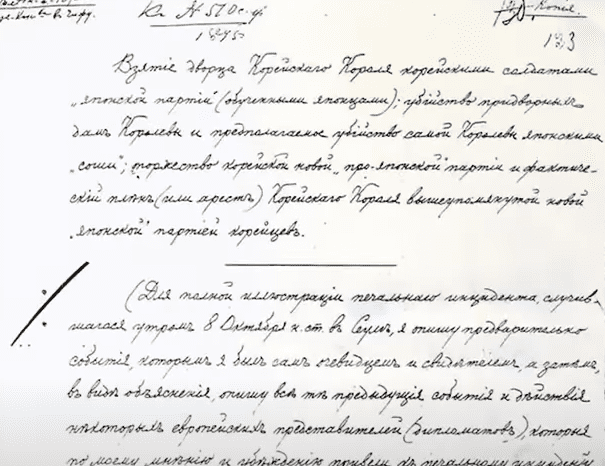 Къ № 510 с.г.
1895
Копія.
133
Взятіе дворца Корейскаго Короля корейскими солдатами
„японской партіи" (обученными японцами); убійство придворныхъ
дамъ Королевы и предполагаемое убійство самой Королевы японскими
„соши"; торжество корейской новой „про-японской" партіи и фактиче-
скій плѣнъ (или арестъ) Корейскаго Короля вышеупомянутой новой
„японской" партіей корейцевъ.
(Для полной иллюстраціи печальнаго инцидента, случив-
шагося утромъ 8 Октября н. ст. въ Сеулѣ, я опишу предварительно
событія, которымъ я былъ самъ очевидцемъ и свидѣтелемъ, а затѣмъ,
въ видѣ объясненія, опишу всѣ тѣ предыдущія событія и дѣйствія
нѣкоторыхъ европейскихъ представителей (дипломатовъ), которыя
по моему мнѣнію и убѣжденію привели къ печальному инциденту